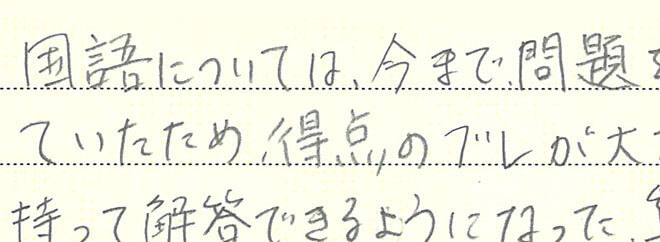 国語については、今まで、問題を
ていたため、得点のブレが大
持って解答できるようになった。